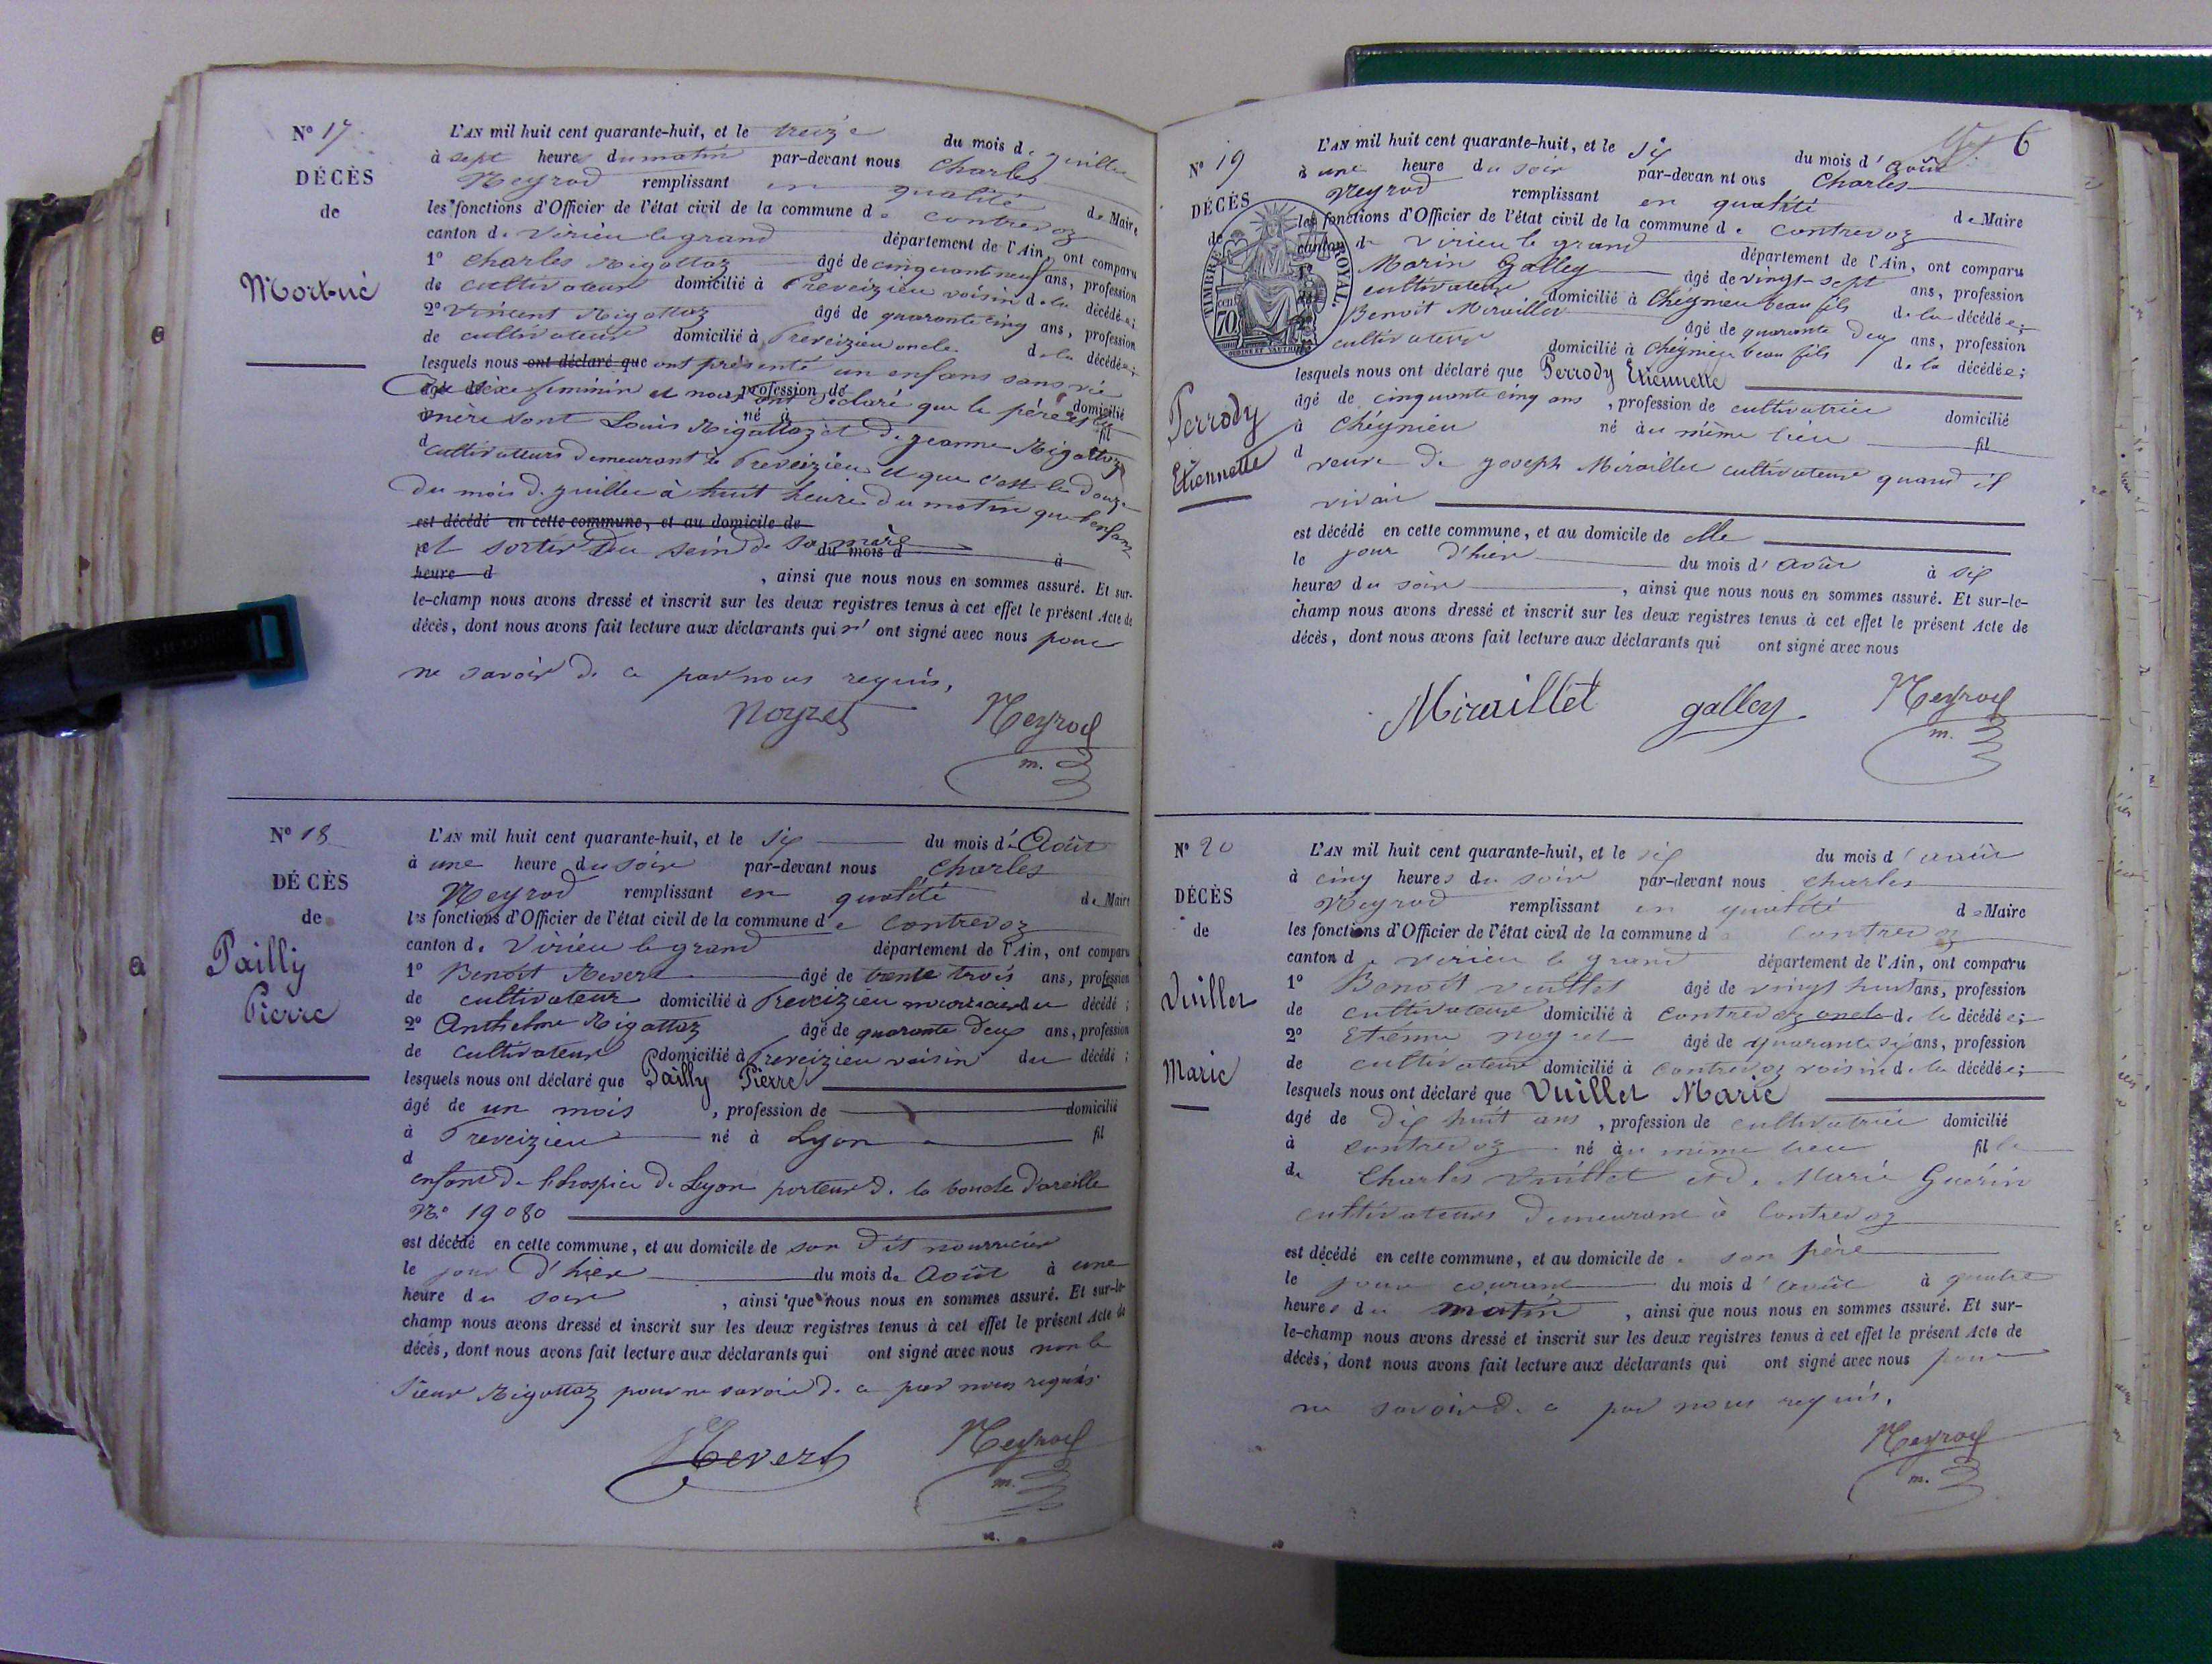 N° 17
DÉCÈS
de
Mort-né
L'AN mil huit cent quarante-huit, et le treize du mois de juillet
à sept heures du matin par-devant nous Charles
Neyrod remplissant en qualité de Maire
les fonctions d'Officier de l'état civil de la commune de contrevoz
canton de Virieu le grand département de l'Ain, ont comparu
1° Charles Rigottaz âgé de cinquante neuf ans, profession
de cultivateur domicilié à Preveizieu voisin de la décédée;
2° Vincent Rigottaz âgé de quarante cinq ans, profession
de cultivateur domicilié à Preveizieu oncle de la décédée;
lesquels nous ont déclaré que ont présenté un enfans sans vie
du sexe feminin et nous ont déclaré que le père et la
mère sont Louis Rigottaz et de jeanne Rigottaz
cultivateurs demeurant à Preveizieu et que c'est le douze
du mois de juillet à huit heure du matin que l'enfans
est décédé en cette commune, et au domicile de
et sortir du sein de sa mère du mois d à
heure d , ainsi que nous nous en sommes assuré. Et sur-
le-champ nous avons dressé et inscrit sur les deux registres tenus à cet effet le présent Acte de
décès, dont nous avons fait lecture aux déclarants qui n' ont signé avec nous pour
ne savoir de ce par nous requis.
Noyret Neyrod
m.
N° 18
DÉCÈS
de
Pailly
Pierre
L'AN mil huit cent quarante-huit, et le six du mois d'Août
à une heure du soir par-devant nous Charles
Neyrod remplissant en qualité de Maire
les fonctions d'Officier de l'état civil de la commune de contrevoz
canton de Virieu le grand département de l'Ain, ont comparu
1° Benoît Revert âgé de trente trois ans, profession
de cultivateur domicilié à Preveizieu nourricier du décédé;
2° Anthelme Rigottaz âgé de quarante deux ans, profession
de cultivateur domicilié à Preveizieu voisin du décédé;
lesquels nous ont déclaré que Pailly Pierre
âgé de un mois , profession de domicilié
à Preveizieu né à Lyon fil
d
enfant de l'hospice de Lyon porteur de la boucle d'oreille
N° 19080
est décédé en cette commune, et au domicile de son dit nourricier
le jour d'hier du mois de Août à une
heure du soir , ainsi que nous nous en sommes assuré. Et sur-le-
champ nous avons dressé et inscrit sur les deux registres tenus à cet effet le présent Acte de
décès, dont nous avons fait lecture aux déclarants qui ont signé avec nous non le
sieur Rigottaz pour ne savoir de ce par nous requis.
Revert Neyrod
m.
6
N° 19
DÉCÈS
de
TIMBRE ROYAL.
70
Perrody
Etiennette
L'AN mil huit cent quarante-huit, et le six du mois d'Août
à une heure du soir par-devan nt ous Charles
Neyrod remplissant en qualité de Maire
les fonctions d'Officier de l'état civil de la commune de contrevoz
canton de Virieu le grand département de l'Ain, ont comparu
Marin Galley âgé de vingt-sept ans, profession
cultivateur domicilié à Chégnieu beau fils de la décédée;
Benoit Miraillet âgé de quarante deux ans, profession
cultivateur domicilié à Chégnieu beau fils de la décédée;
lesquels nous ont déclaré que Perrody Etiennette
âgé de cinquante cinq ans , profession de cultivatrice domicilié
à Chégnieu né àu même lieu fil
d veuve de joseph Miraillet cultivateur quand il
vivait
est décédé en cette commune, et au domicile de elle
le jour d'hier du mois d'Août à six
heures du soir , ainsi que nous nous en sommes assuré. Et sur-le-
champ nous avons dressé et inscrit sur les deux registres tenus à cet effet le présent Acte de
décès, dont nous avons fait lecture aux déclarants qui ont signé avec nous
Miraillet galley Neyrod
m.
N° 20
DÉCÈS
de
Vuillet
Marie
L'AN mil huit cent quarante-huit, et le six du mois d'août
à cinq heures du soir par-devant nous charles
Neyrod remplissant en qualité de Maire
les fonctions d'Officier de l'état civil de la commune de contrevoz
canton de virieu le grand département de l'Ain, ont comparu
1° Benoît vuillet âgé de vingt huit ans, profession
de cultivateur domicilié à contrevoz oncle de la décédée;
2° Etienne noyret âgé de quarante six ans, profession
de cultivateur domicilié à contrevoz voisin de la décédée;
lesquels nous ont déclaré que Vuillet Marie
âgé de dix huit ans , profession de cultivatrice domicilié
à contrevoz né àu même lieu fille
de Charles Vuillet et de Marie Guérin
cultivateurs demeurant à Contrevoz
est décédé en cette commune, et au domicile de son père
le jour courant du mois d'août à quatre
heures du matin , ainsi que nous nous en sommes assuré. Et sur-
le-champ nous avons dressé et inscrit sur les deux registres tenus à cet effet le présent Acte de
décès, dont nous avons fait lecture aux déclarants qui ont signé avec nous pour
ne savoir de ce par nous requis.
Neyrod
m.